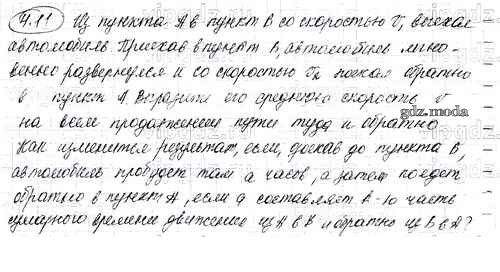 4.11 Из пункта А в пункт В со скоростью v₁ выехал
автомобиль. Приехав в пункт В, автомобиль мгно-
венно развернулся и со скоростью v₂ поехал обратно
в пункт А. Выразите его среднюю скорость v
gdz.moda
на всем продолжении пути туда и обратно.
Как изменится результат, если, доехав до пункта В,
автомобиль пробудет там a часов, а затем поедет
обратно в пункт А, если a составляет k-ю часть
суммарного времени движения из А в В и обратно из В в А?